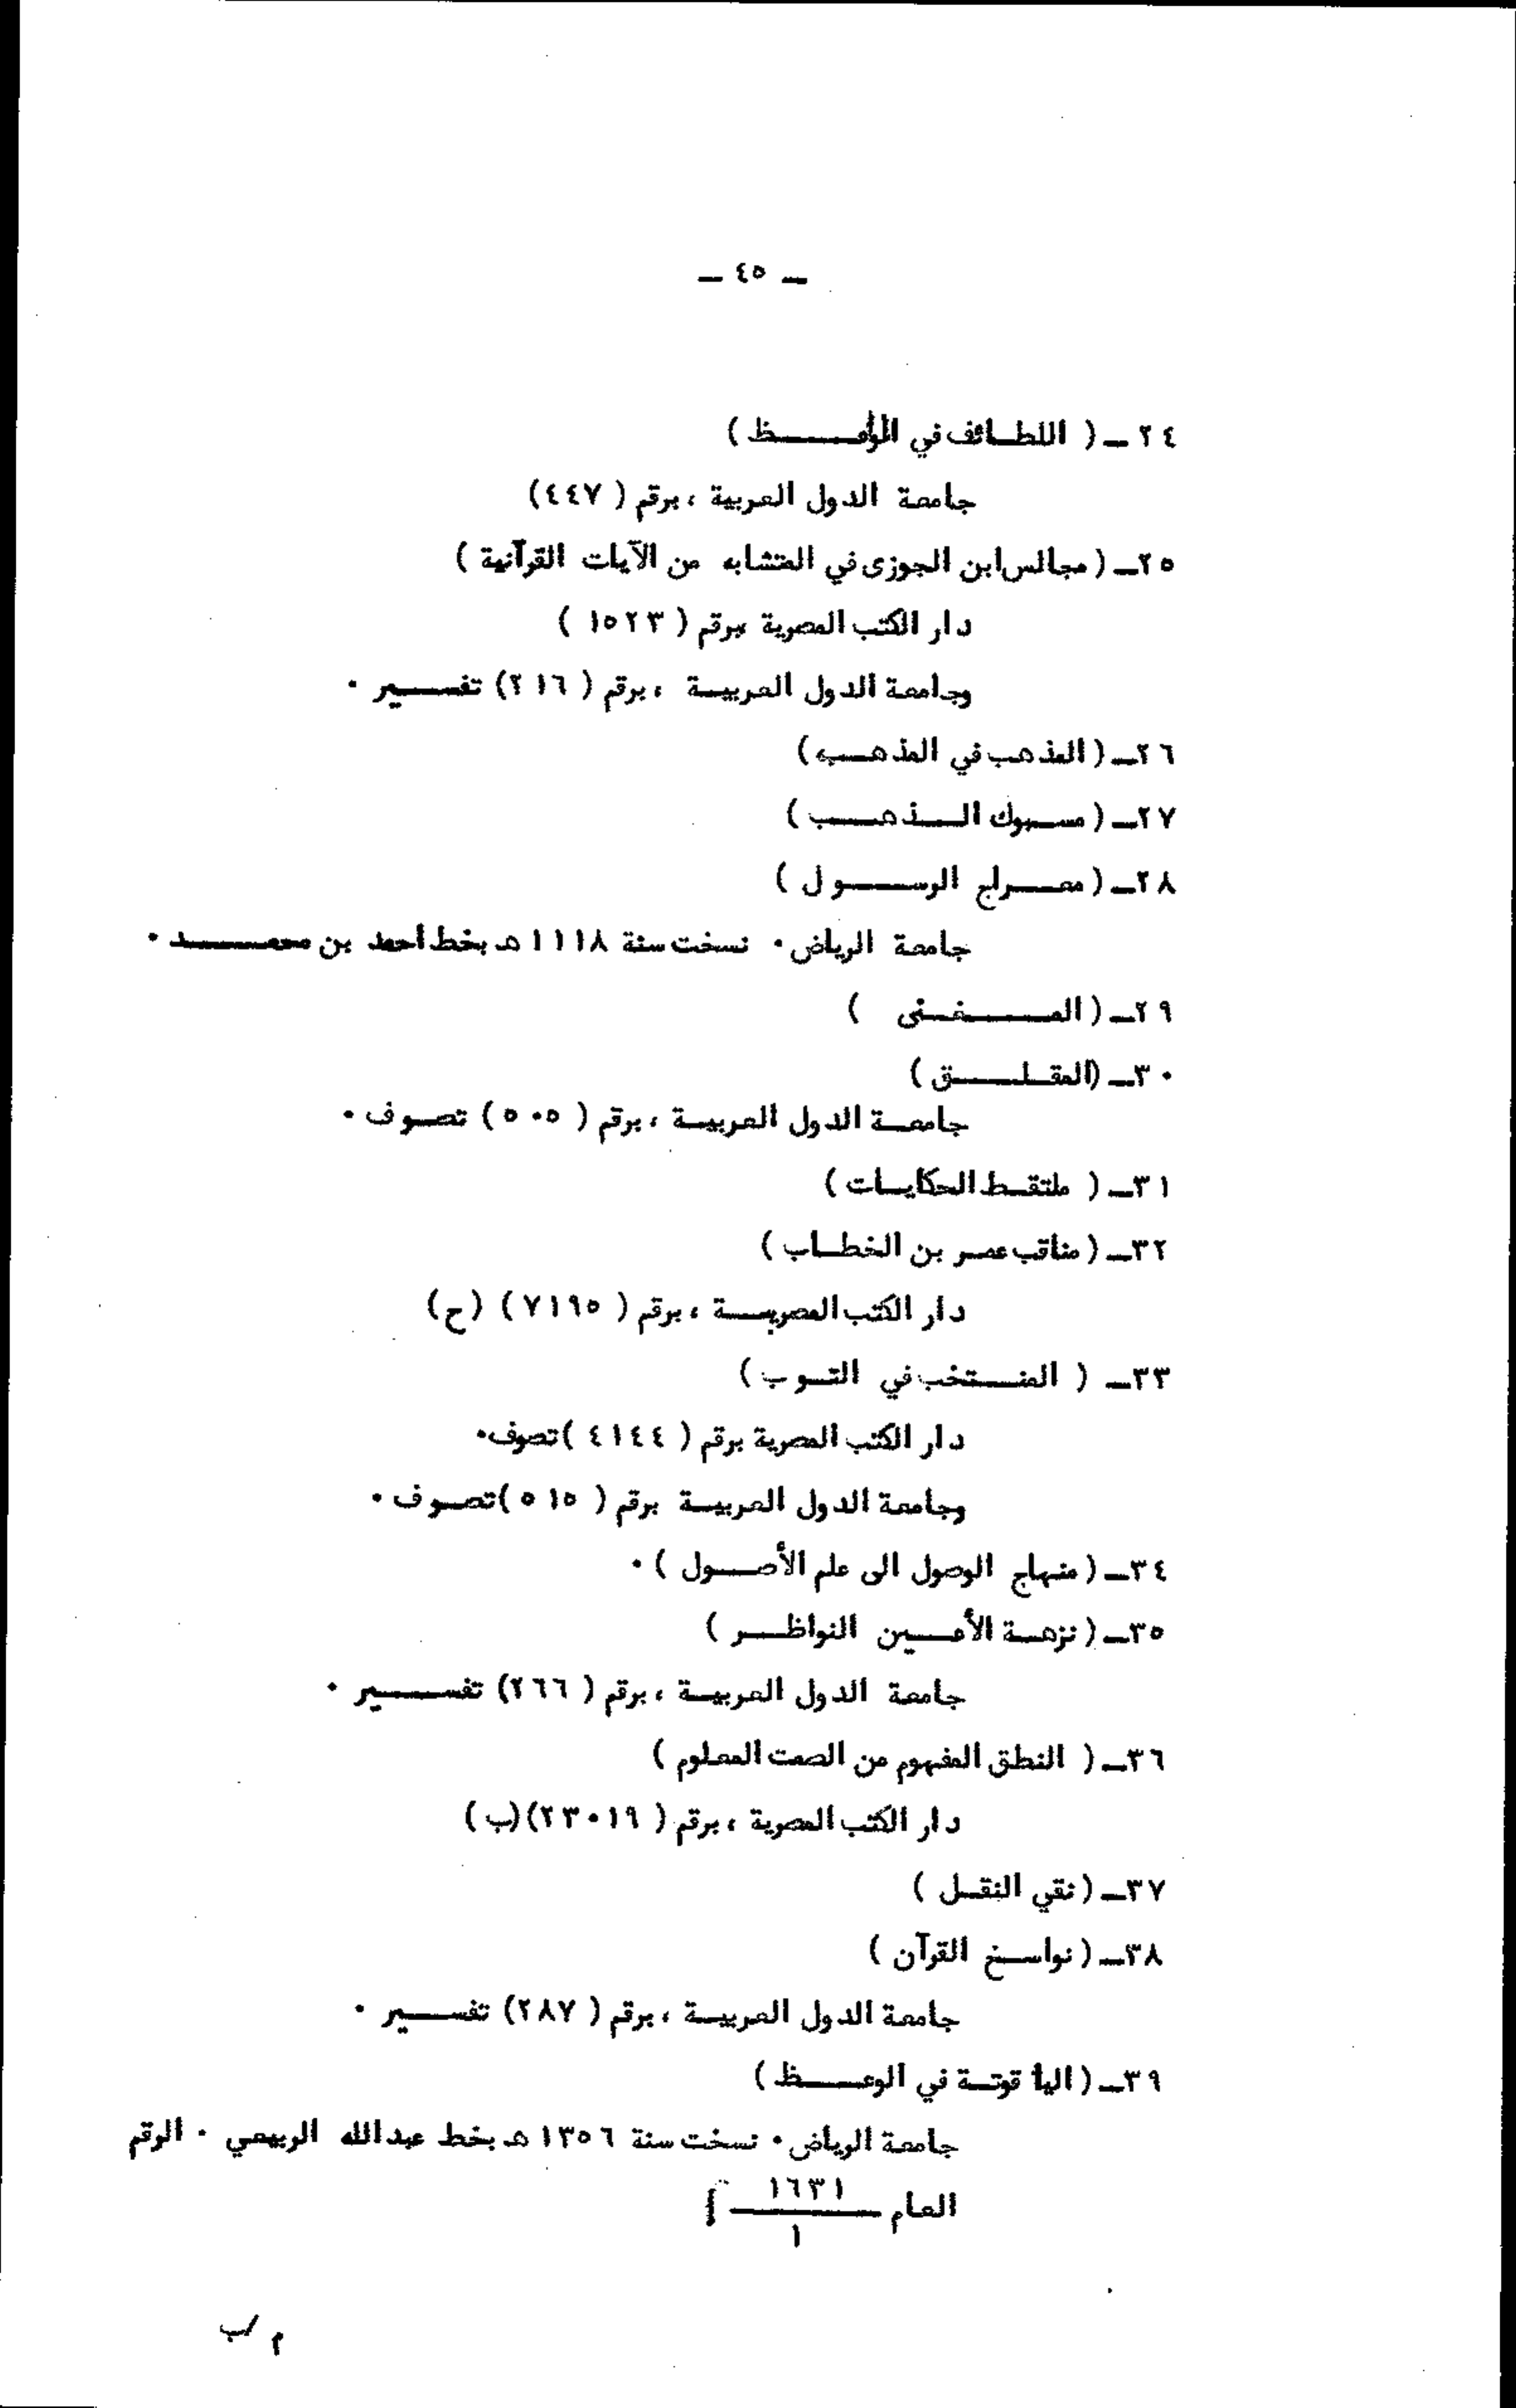 ـ ٤٥ ـ
٢٤ـ ( اللطائف في الوعظ )
جامعة الدول العربية ، برقم ( ٤٤٧)
٢٥ـ ( مجالس ابن الجوزى في المتشابه من الآيات القرآنية )
دار الكتب المصرية ،برقم ( ١٥٢٣ )
وجامعة الدول العربية ، برقم ( ٢١٦) تفسير ٠
٢٦ـ ( المذهب في المذهب )
٢٧ـ ( مسبوك الذهب )
٢٨ـ ( معراج الرسول )
جامعة الرياض ٠ نسخت سنة ١١١٨ هـ بخط أحمد بن محمد ٠
٢٩ـ ( المغنى )
٣٠ـ (المقلق )
جامعة الدول العربية ، برقم ( ٥٠٥ ) تصوف ٠
٣١ـ ( ملتقط الحكايات )
٣٢ـ ( مناقب عمر بن الخطاب )
دار الكتب المصرية ، برقم ( ٧١٩٥ ) (ح)
٣٣ـ ( المنتخب في التوب )
دار الكتب المصرية برقم ( ٤١٤٤ ) تصوف٠
وجامعة الدول العربية برقم ( ٥١٥ ) تصوف ٠
٣٤ـ ( منهاج الوصول الى علم الأصول ) ٠
٣٥ـ ( نزهة الأعين النواظر )
جامعة الدول العربية ، برقم ( ٢٦٦) تفسير ٠
٣٦ـ ( النطق المفهوم من الصمت المعلوم )
دار الكتب المصرية ، برقم ( ٢٣٠١٩)(ب )
٣٧ـ ( نقي النقل )
٣٨ـ ( نواسخ القرآن )
جامعة الدول العربية ، برقم ( ٢٨٧) تفسير ٠
٣٩ـ ( اليأ قوتة في الوعظ )
جامعة الرياض ٠ نسخت سنة ١٣٥٦ هـ بخط عبدالله الربيعي ٠ الرقم
العام ١٦٣١
١
م /ب